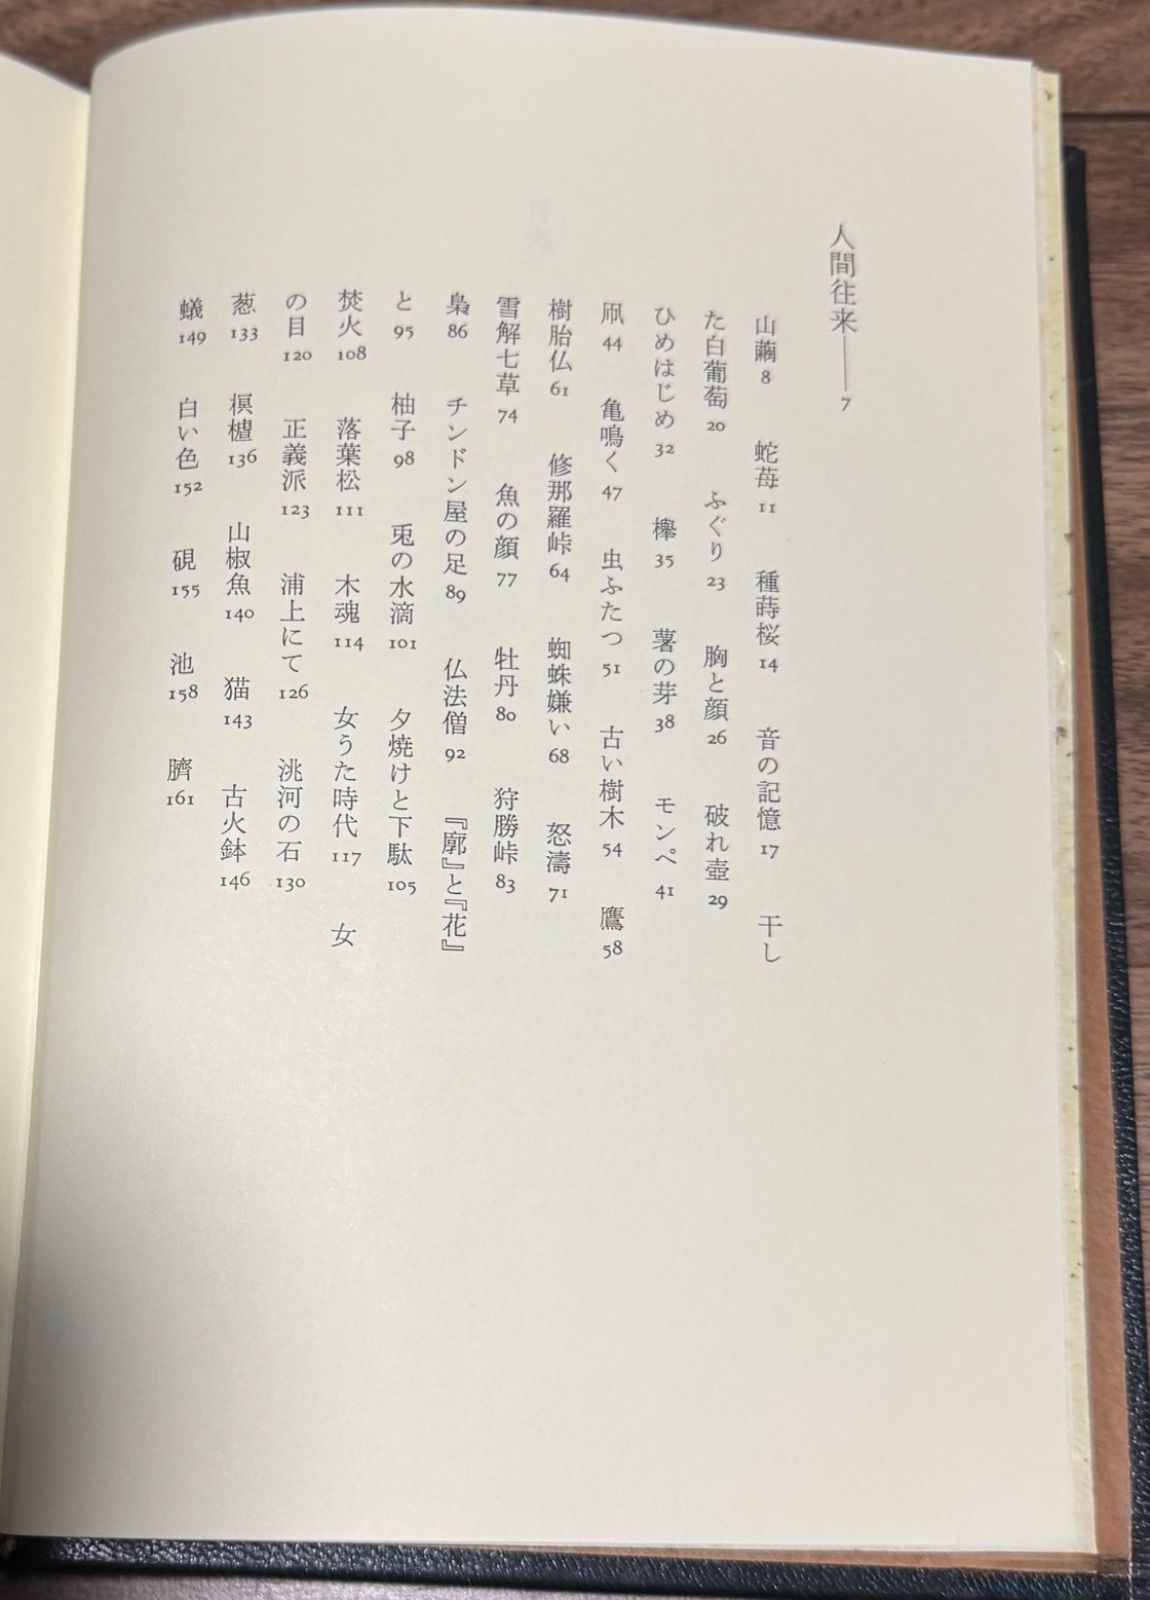 人間往来――7
山繭8　蛇苺11　種蒔桜14　音の記憶17　干し
た白葡萄20　ふぐり23　胸と顔26　破れ壺29
ひめはじめ32　欅35　薯の芽38　モンペ41
凧44　亀鳴く47　虫ふたつ51　古い樹木54　鷹58
樹胎仏61　修那羅峠64　蜘蛛嫌い68　怒濤71
雪解七草74　魚の顔77　牡丹80　狩勝峠83
梟86　チンドン屋の足89　仏法僧92　『廓』と『花』
と95　柚子98　兎の水滴101　夕焼けと下駄105
焚火108　落葉松111　木魂114　女うた時代117　女
の目120　正義派123　浦上にて126　洮河の石130
葱133　榠樝136　山椒魚140　猫143　古火鉢146
蟻149　白い色152　硯155　池158　臍161